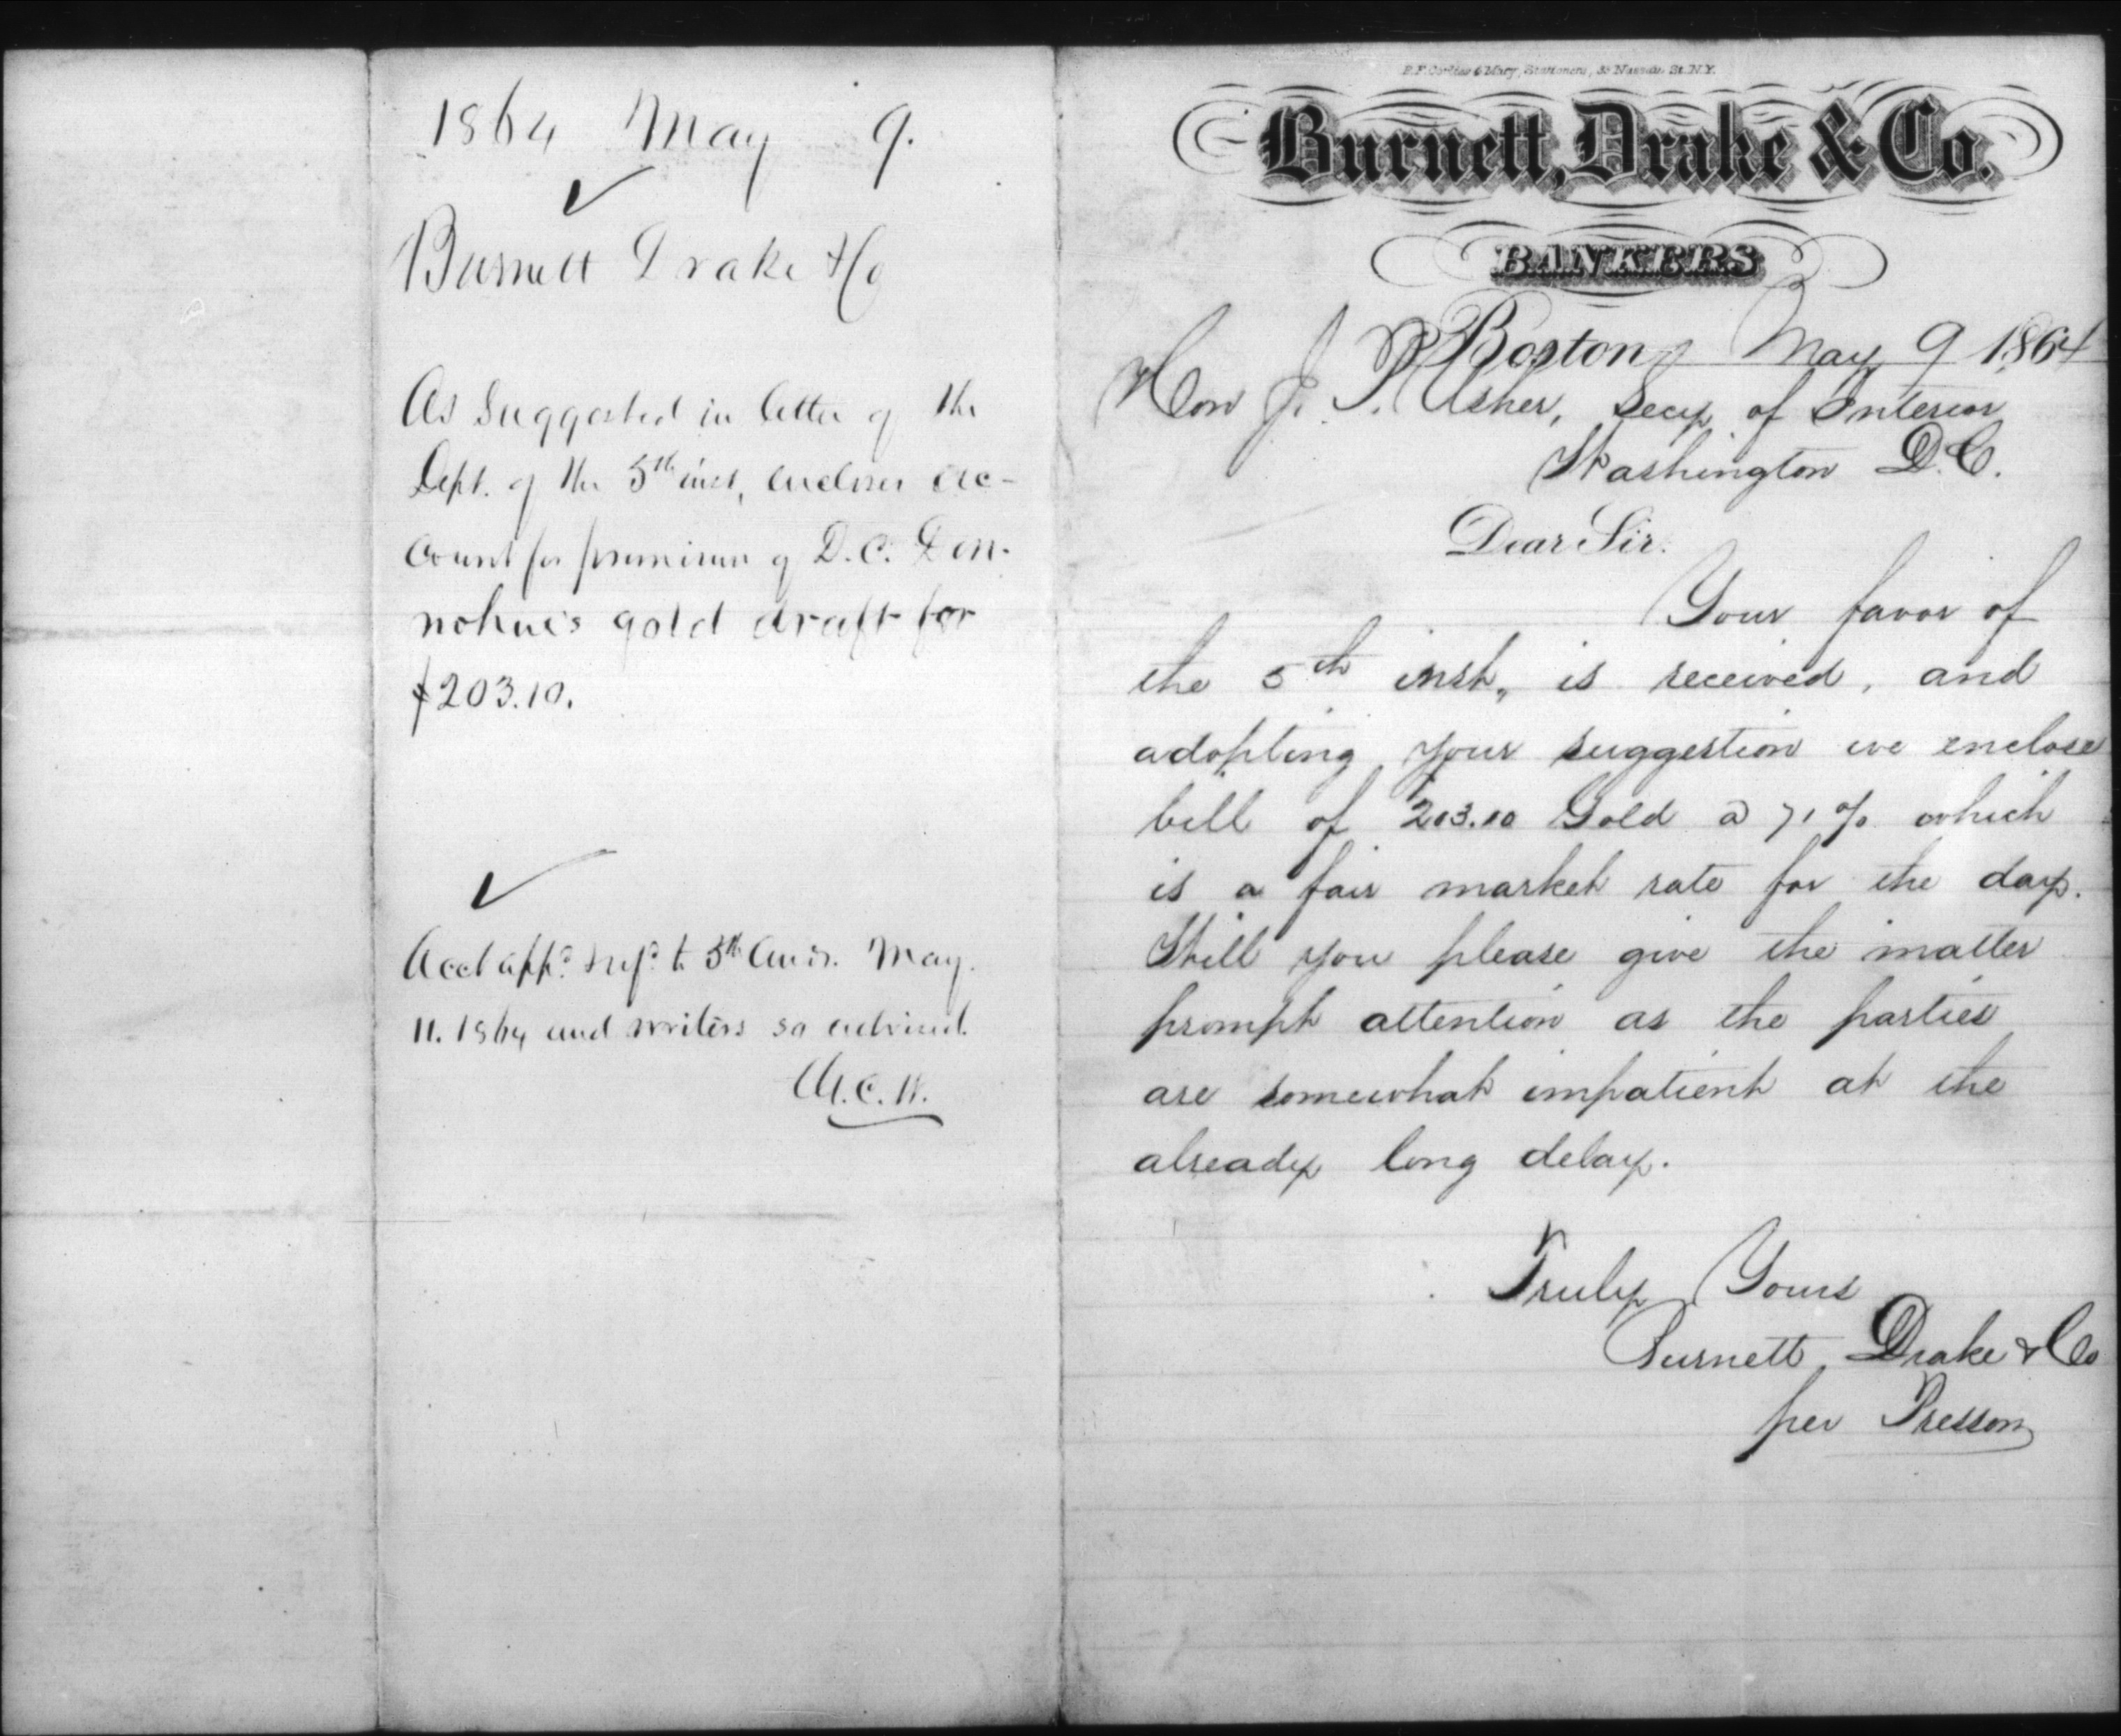 1864 May 9.
Burnett Drake & Co
As Suggested in letter of the
Dept. of the 5th inst, encloses ac-
count for premium of D.C. Don-
nohue's gold draft for
$203.10.
Acct appd. & refd. to 5th Aud. May
11. 1864 and writers so advised.
St. N.Y.
Burnett, Drake & Co.
BANKERS
Boston, May 9 1864
Hon J. P. Usher, Secy of Interior
Washington D.C.
Dear Sir.
Your favor of
the 5th inst, is received, and
adopting your suggestion we enclose
bill of $203.10 Gold @ 71% which
is a fair market rate for the day.
Will you please give the matter
prompt attention as the parties
are somewhat impatient at the
already long delay.
Truly Yours
Burnett, Drake & Co
per Presson